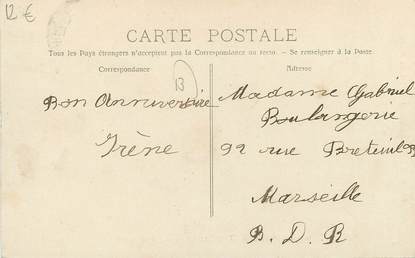 12 €
CARTE POSTALE
Tous les Pays étrangers n'acceptent pas la Correspondance au recto. — Se renseigner à la Poste.
Correspondance
13
Bon Anniversaire
Irène
Adresse
Madame Gabriel
Boulangerie
92 rue Breteuil
Marseille
B. D. R